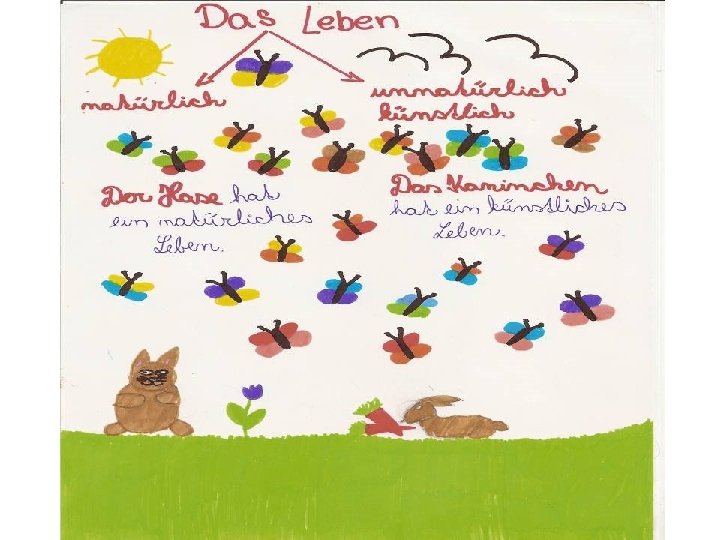 Das Leben
natürlich
unnatürlich
künstlich
Der Hase hat
ein natürliches
Leben.
Das Kaninchen
hat ein künstliches
Leben.